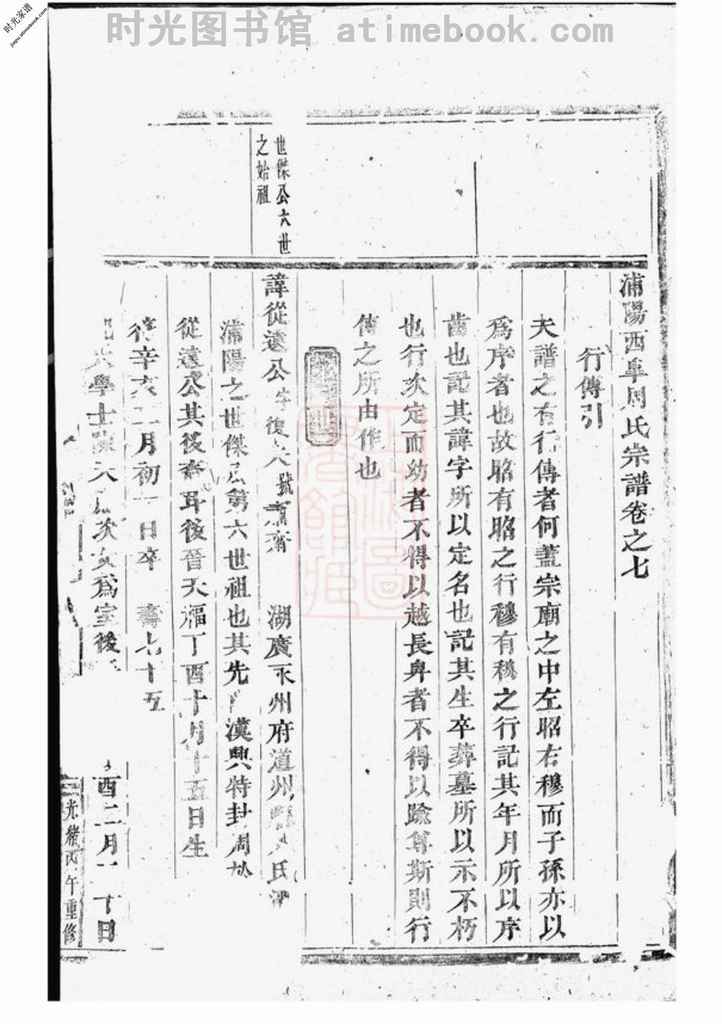 时光图书馆 atimebook.com
时光家谱
浦陽西阜周氏宗譜卷之七
行傳引
夫譜之有行傳者何蓋宗廟之中左昭右穆而子孫亦以
爲序者也故昭有昭之行穆有穆之行記其年月所以序
齒也記其諱字所以定名也記其生卒葬墓所以示不朽
也行次定而幼者不得以越長卑者不得以踰尊斯則行
傳之所由作也
世傑公六世
之始祖
諱從遠公字復 號 齋 湖廣永州府道州 氏
浦陽之世傑公第六世祖也其先 漢興特封周
從遠公其後裔耳後晉天福丁酉十月十五日生
辛亥二月初 日卒 壽七十五
學士 次女爲室後
酉二月 十日
光緒丙午重修